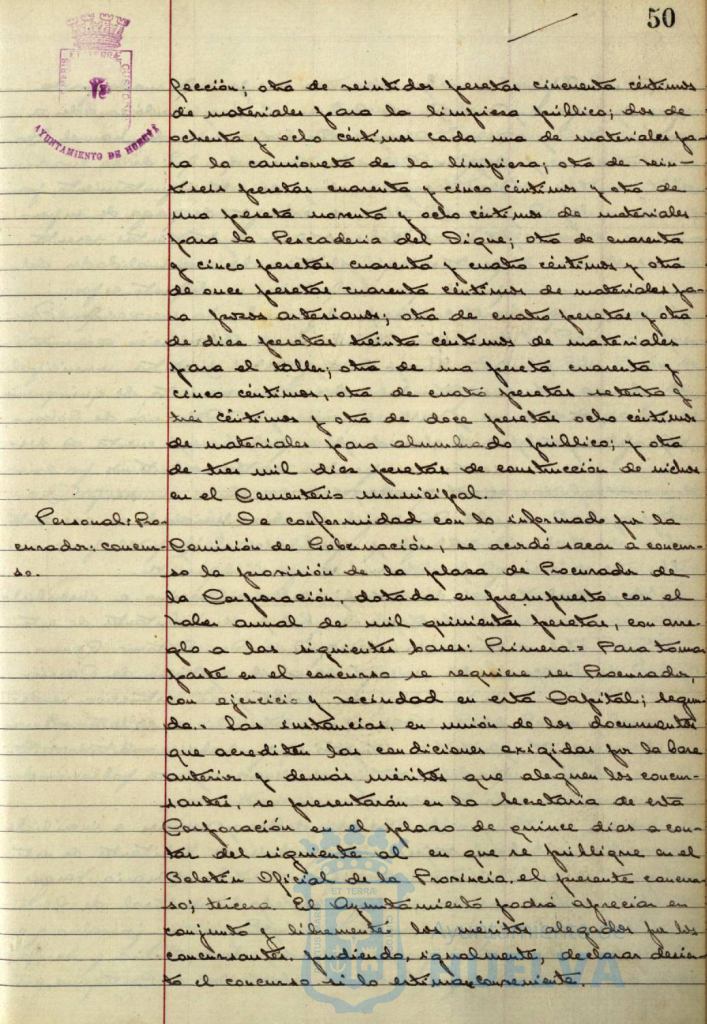 50
AYUNTAMIENTO DE HUELVA
pección; otra de veintidos pesetas cincuenta céntimos
de materiales para la limpieza público; dos de
ochenta y ocho céntimos cada una de materiales pa-
ra la camioneta de la limpieza; otra de vein-
tiseis pesetas cuarenta y cinco céntimos y otra de
una peseta noventa y ocho céntimos de materiales
para la Pescaderia del Dique; otra de cuarenta
y cinco pesetas cuarenta y cuatro céntimos y otra
de once pesetas cuarenta céntimos de materiales pa-
ra pozos artesianos; otra de cuatro pesetas y otra
de diez pesetas treinta céntimos de materiales
para el taller; otra de una peseta cuarenta y
cinco céntimos, otra de cuatro pesetas setenta y
tres céntimos y otra de doce pesetas ocho céntimos
de materiales para alumbrado público; y otra
de tres mil diez pesetas de construcción de nichos
en el Cementerio municipal.
Personal: Pro-
curador: concur-
so.
De conformidad con lo informado por la
Comisión de Gobernación, se acordó sacar a concur-
so la provisión de la plaza de Procurador de
la Corporación, dotada en presupuesto con el
haber anual de mil quinientas pesetas, con arre-
glo a las siguientes bases: Primera.= Para tomar
parte en el concurso se requiere ser Procurador,
con ejercicio y vecindad en esta Capital; segun-
da.= Las instancias, en unión de los documentos
que acrediten las condiciones exigidas por la base
anterior y demás méritos que aleguen los concur-
santes, se presentarán en la Secretaria de esta
Corporación en el plazo de quince dias a con-
tar del siguiente al en que se publique en el
Boletín Oficial de la Provincia, el presente concur-
so; tercera. El Ayuntamiento podrá apreciar en
conjunto y libremente los méritos alegados por los
concursantes, pudiendo, igualmente, declarar desier-
to el concurso si lo estima conveniente.